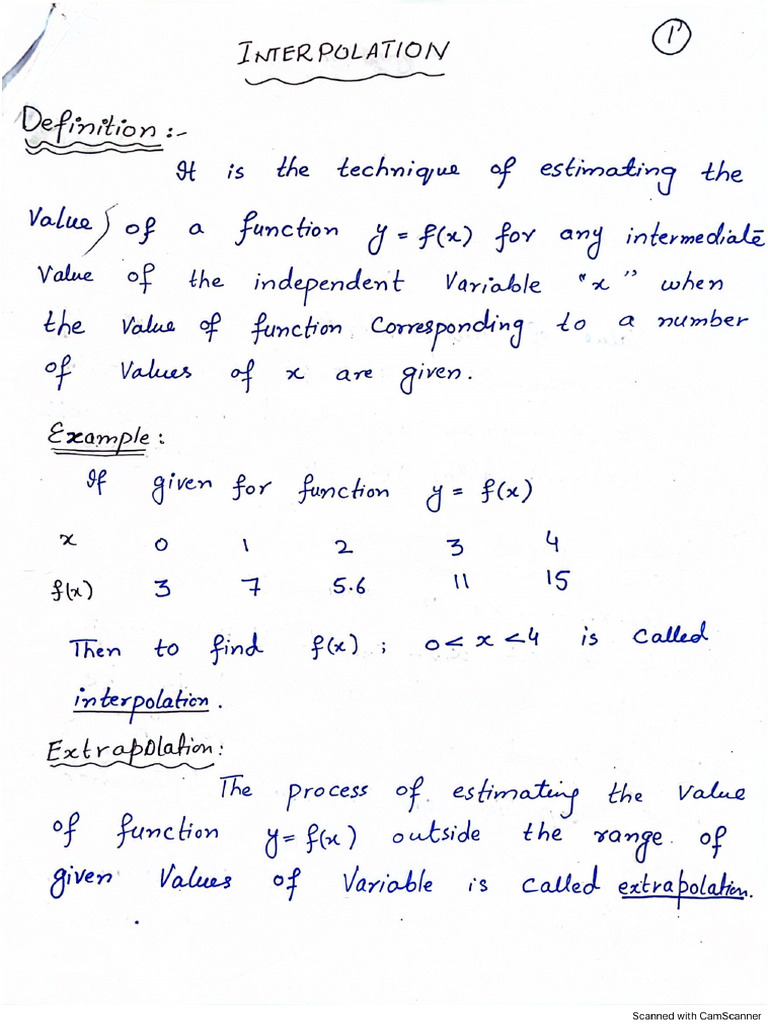 INTERPOLATION
1
Definition :-
It is the technique of estimating the
Value of a function y = f(x) for any intermediate
Value of the independent Variable "x" when
the Value of function Corresponding to a number
of Values of x are given.
Example :
If given for function y = f(x)
x 0 1 2 3 4
f(x) 3 7 5.6 11 15
Then to find f(x) ; 0 < x < 4 is called
interpolation.
Extrapolation :
The process of estimating the value
of function y = f(x) outside the range of
given Values of Variable is called extrapolation.
Scanned with CamScanner